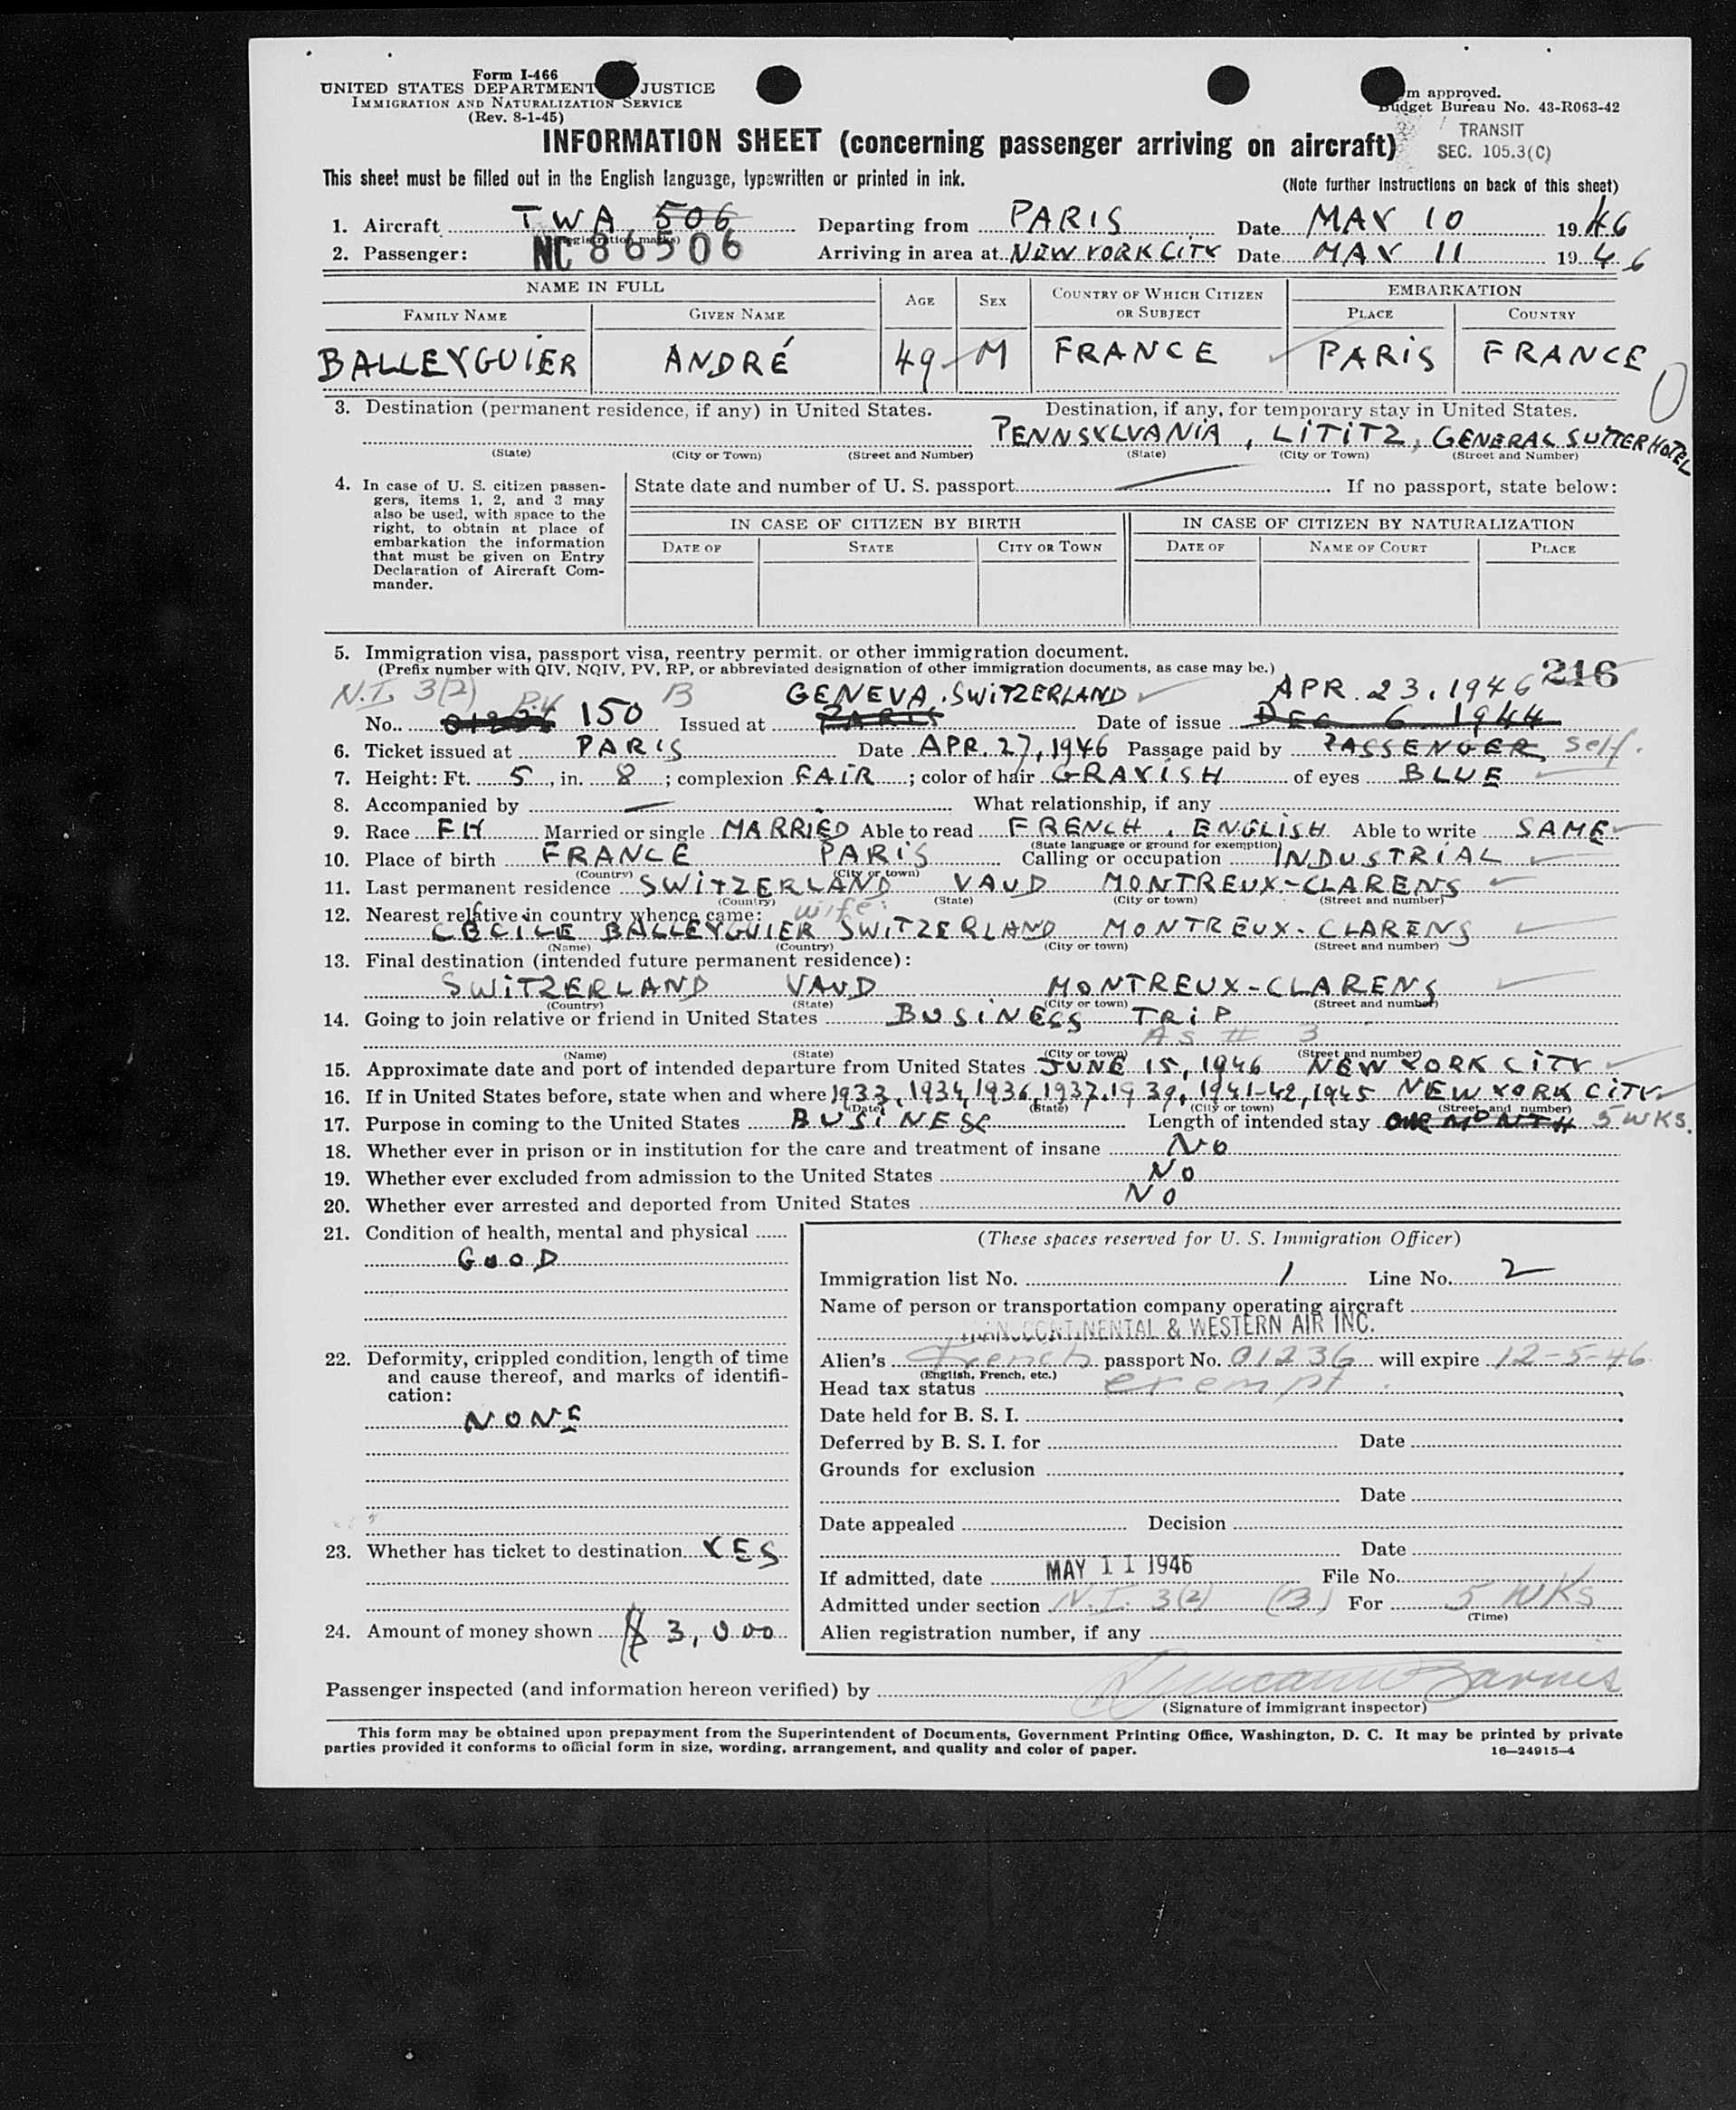 Form I-466
UNITED STATES DEPARTMENT JUSTICE
IMMIGRATION AND NATURALIZATION SERVICE
(Rev. 8-1-45)
m approved.
Budget Bureau No. 43-R063-42
TRANSIT
SEC. 105.3(C)
INFORMATION SHEET (concerning passenger arriving on aircraft)
This sheet must be filled out in the English language, typewritten or printed in ink.
(Note further instructions on back of this sheet)
1. Aircraft TWA 506 Departing from PARIS Date MAY 10 1946
(Registration marks)
2. Passenger: NC 86506 Arriving in area at NEW YORK CITY Date MAY 11 1946
NAME IN FULL AGE SEX COUNTRY OF WHICH CITIZEN OR SUBJECT EMBARKATION
FAMILY NAME GIVEN NAME PLACE COUNTRY
BALLEYGUIER ANDRÉ 49 M FRANCE PARIS FRANCE
3. Destination (permanent residence, if any) in United States. Destination, if any, for temporary stay in United States.
PENNSYLVANIA, LITITZ, GENERAL SUTTER HOTEL
(State) (City or Town) (Street and Number) (State) (City or Town) (Street and Number)
4. In case of U. S. citizen passengers, items 1, 2, and 3 may also be used, with space to the right, to obtain at place of embarkation the information that must be given on Entry Declaration of Aircraft Commander.
State date and number of U. S. passport If no passport, state below:
IN CASE OF CITIZEN BY BIRTH IN CASE OF CITIZEN BY NATURALIZATION
DATE OF STATE CITY OR TOWN DATE OF NAME OF COURT PLACE
5. Immigration visa, passport visa, reentry permit, or other immigration document.
(Prefix number with QIV, NQIV, PV, RP, or abbreviated designation of other immigration documents, as case may be.)
216
N.I. 3(2) P.V. B GENEVA. SWITZERLAND APR. 23. 1946
No. 150 Issued at PARIS Date of issue DEC 6 1944
6. Ticket issued at PARIS Date APR. 27, 1946 Passage paid by PASSENGER self.
7. Height: Ft. 5, in. 8; complexion FAIR; color of hair GRAYISH of eyes BLUE
8. Accompanied by What relationship, if any
9. Race FH Married or single MARRIED Able to read FRENCH, ENGLISH Able to write SAME
(State language or ground for exemption)
10. Place of birth FRANCE PARIS Calling or occupation INDUSTRIAL
(Country) (City or town)
11. Last permanent residence SWITZERLAND VAUD MONTREUX-CLARENS
(Country) (State) (City or town) (Street and number)
12. Nearest relative in country whence came: wife:
CECILE BALLEYGUIER SWITZERLAND MONTREUX-CLARENS
(Name) (Country) (City or town) (Street and number)
13. Final destination (intended future permanent residence):
SWITZERLAND VAUD MONTREUX-CLARENS
(Country) (State) (City or town) (Street and number)
14. Going to join relative or friend in United States BUSINESS TRIP
As # 3
(Name) (State) (City or town) (Street and number)
15. Approximate date and port of intended departure from United States JUNE 15, 1946 NEW YORK CITY
16. If in United States before, state when and where 1933, 1934, 1936, 1937, 1939, 1941-42, 1945 NEW YORK CITY
(Date) (State) (City or town) (Street and number)
17. Purpose in coming to the United States BUSINESS Length of intended stay ONE MONTH 5 WKS.
18. Whether ever in prison or in institution for the care and treatment of insane NO
19. Whether ever excluded from admission to the United States NO
20. Whether ever arrested and deported from United States NO
21. Condition of health, mental and physical
GOOD
22. Deformity, crippled condition, length of time and cause thereof, and marks of identification:
NONE
23. Whether has ticket to destination YES
24. Amount of money shown $ 3,000
(These spaces reserved for U. S. Immigration Officer)
Immigration list No. 1 Line No. 2
Name of person or transportation company operating aircraft
TRANSCONTINENTAL & WESTERN AIR INC.
Alien's French passport No. 01236 will expire 12-5-46
(English, French, etc.)
Head tax status exempt.
Date held for B. S. I.
Deferred by B. S. I. for Date
Grounds for exclusion
Date
Date appealed Decision
Date
If admitted, date MAY 11 1946 File No.
Admitted under section N.I. 3(2) (B) For 5 WKS
(Time)
Alien registration number, if any
Passenger inspected (and information hereon verified) by Barnes
(Signature of immigrant inspector)
This form may be obtained upon prepayment from the Superintendent of Documents, Government Printing Office, Washington, D. C. It may be printed by private
parties provided it conforms to official form in size, wording, arrangement, and quality and color of paper. 16—24915-4